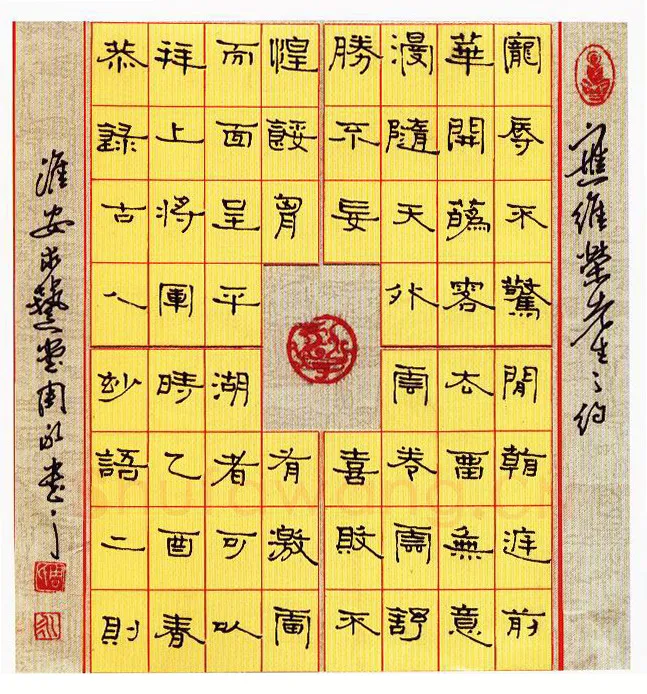 應維榮先生之約
寵辱不驚閒看庭前
華開蘤落去留無意
漫隨天外雲卷雲舒
勝不妄喜敗不
惶餒胷有激雷
而面呈平湖者可以
拜上將軍時乙酉春
恭錄古人妙語二則
淮安求藝堂周永書